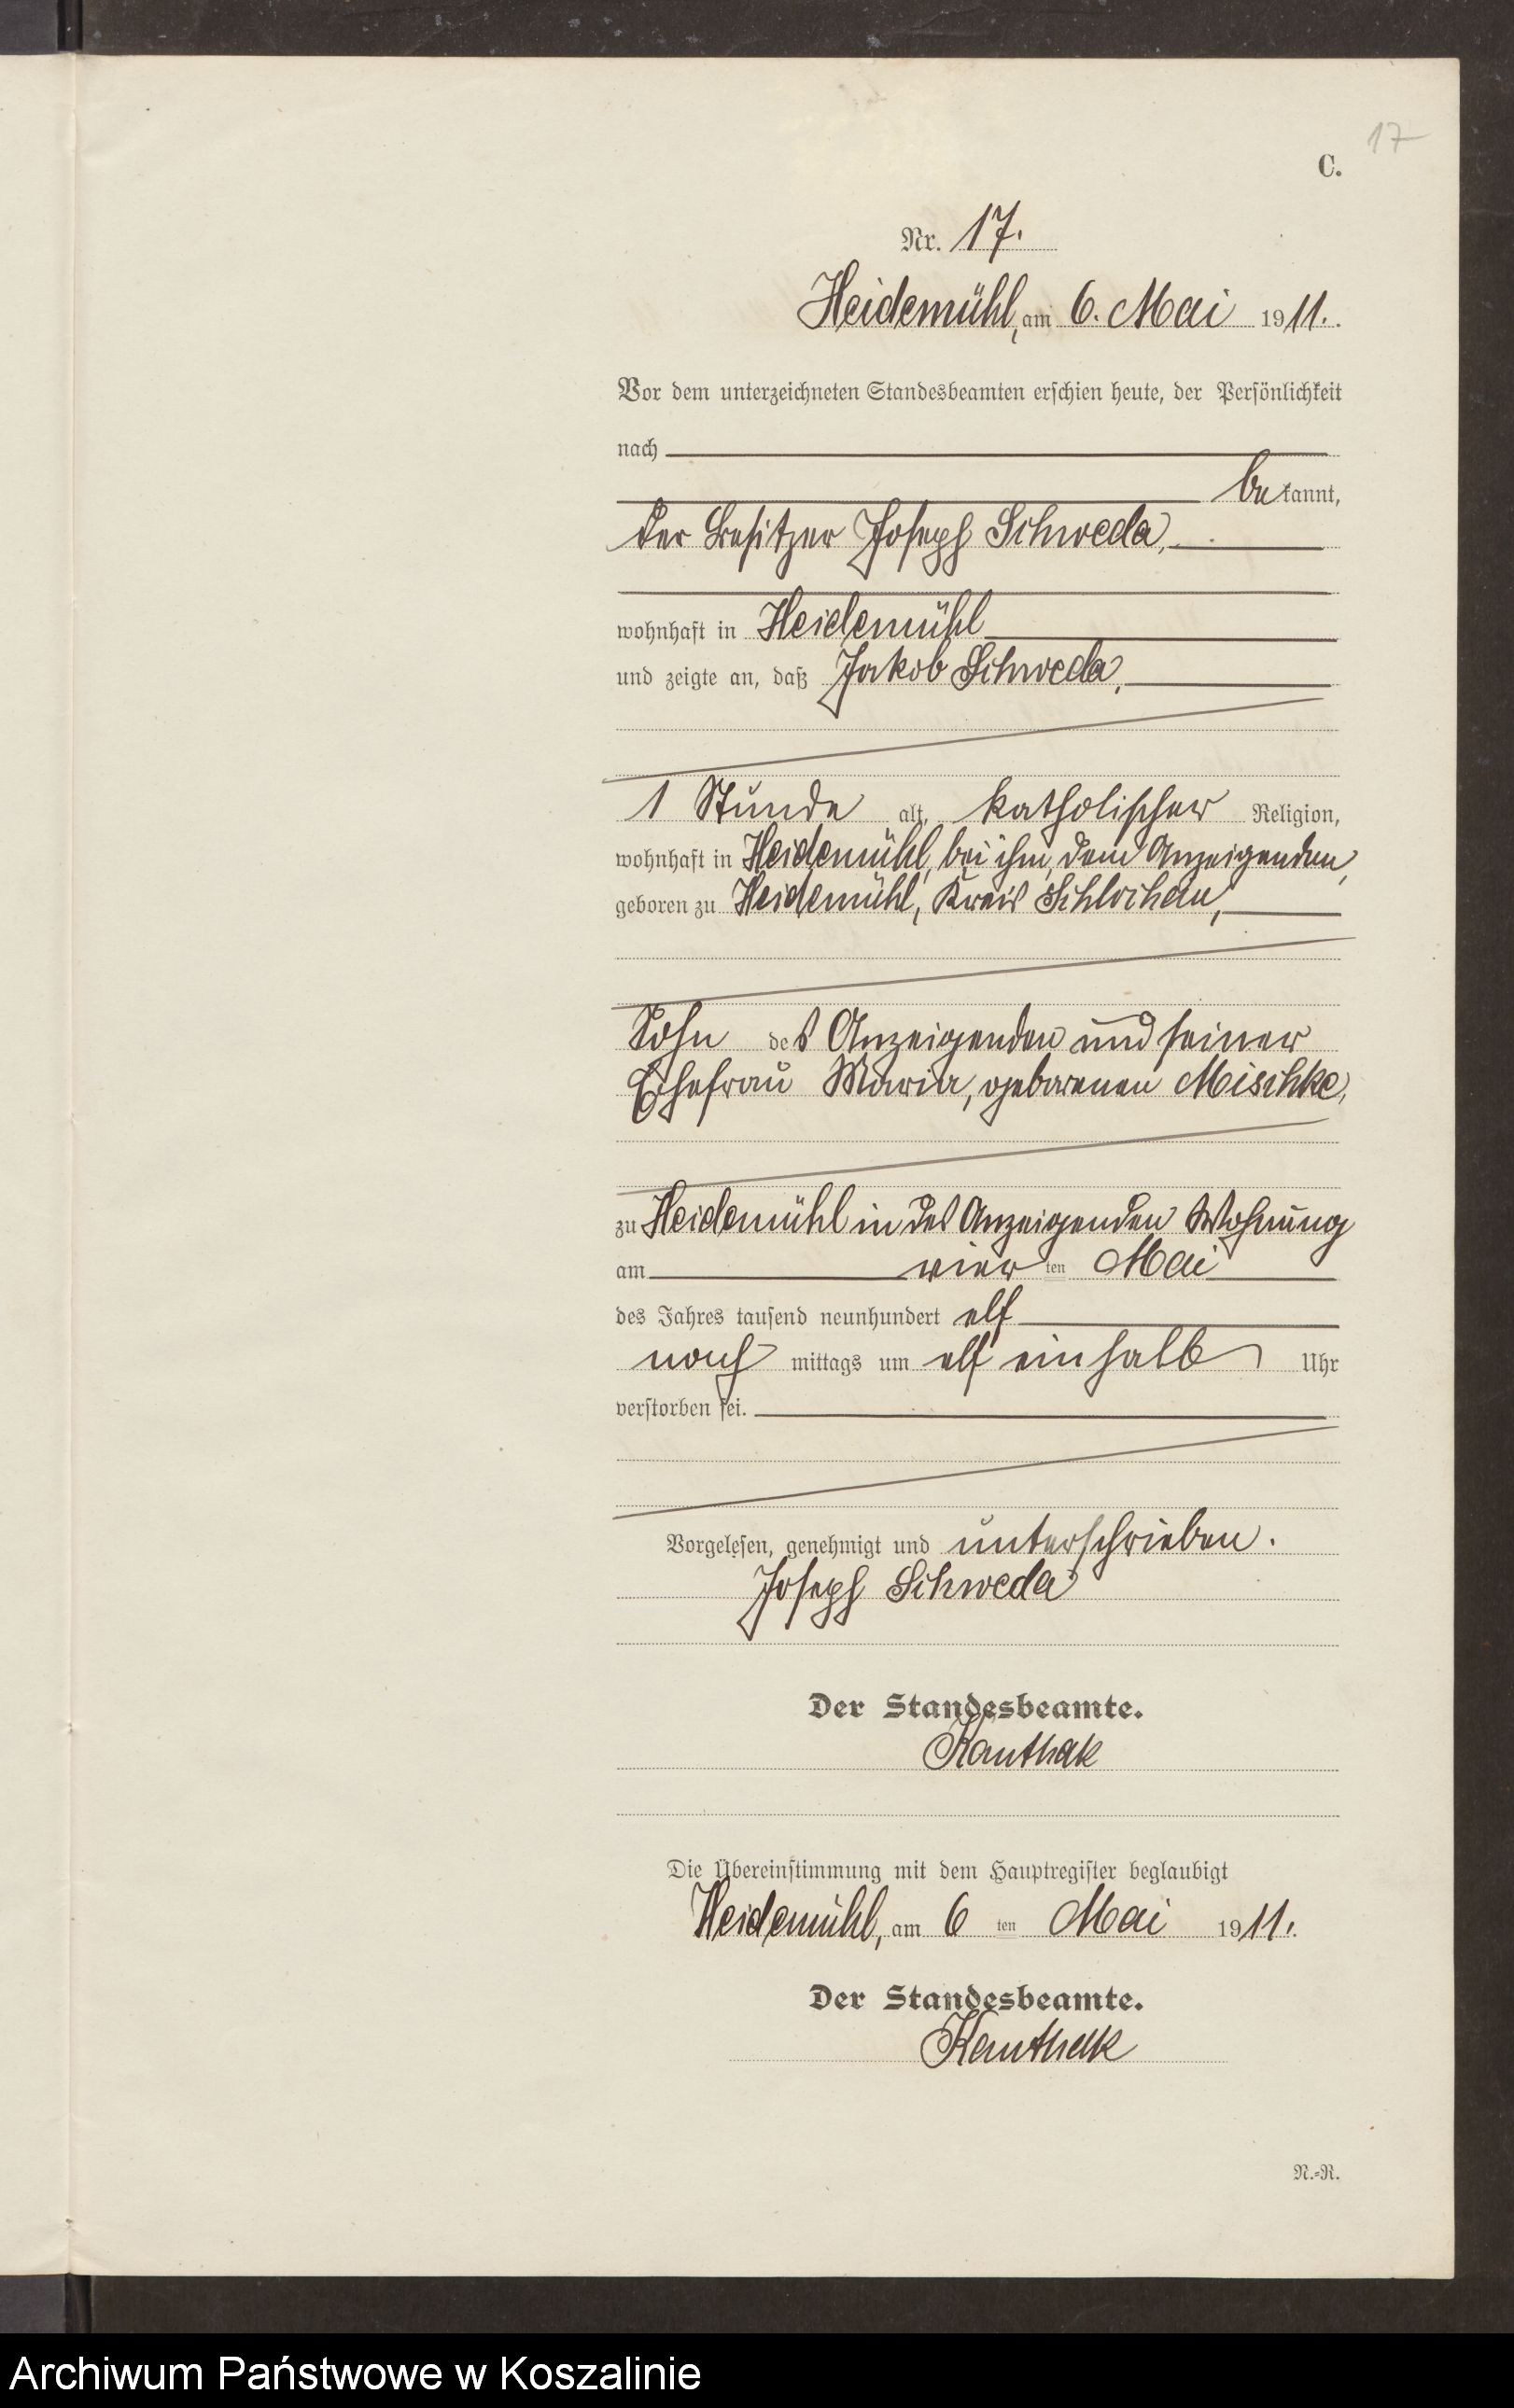 17
C.
Nr. 17.
Heidemühl, am 6. Mai 1911.
Vor dem unterzeichneten Standesbeamten erschien heute, der Persönlichkeit
nach
bekannt,
der Besitzer Joseph Schweda,
wohnhaft in Heidemühl
und zeigte an, daß Jakob Schweda,
1 Stunde alt, katholischer Religion,
wohnhaft in Heidemühl, bei ihm, dem Anzeigenden,
geboren zu Heidemühl, Kreis Schlochau,
Sohn des Anzeigenden und seiner
Ehefrau Maria, geborenen Mischke,
zu Heidemühl in des Anzeigenden Wohnung
am vierten Mai
des Jahres tausend neunhundert elf
nachmittags um elf einhalb Uhr
verstorben sei.
Vorgelesen, genehmigt und unterschrieben.
Joseph Schweda
Der Standesbeamte.
Kanthak
Die Übereinstimmung mit dem Hauptregister beglaubigt
Heidemühl, am 6ten Mai 1911.
Der Standesbeamte.
Kanthak
N.-R.
Archiwum Państwowe w Koszalinie